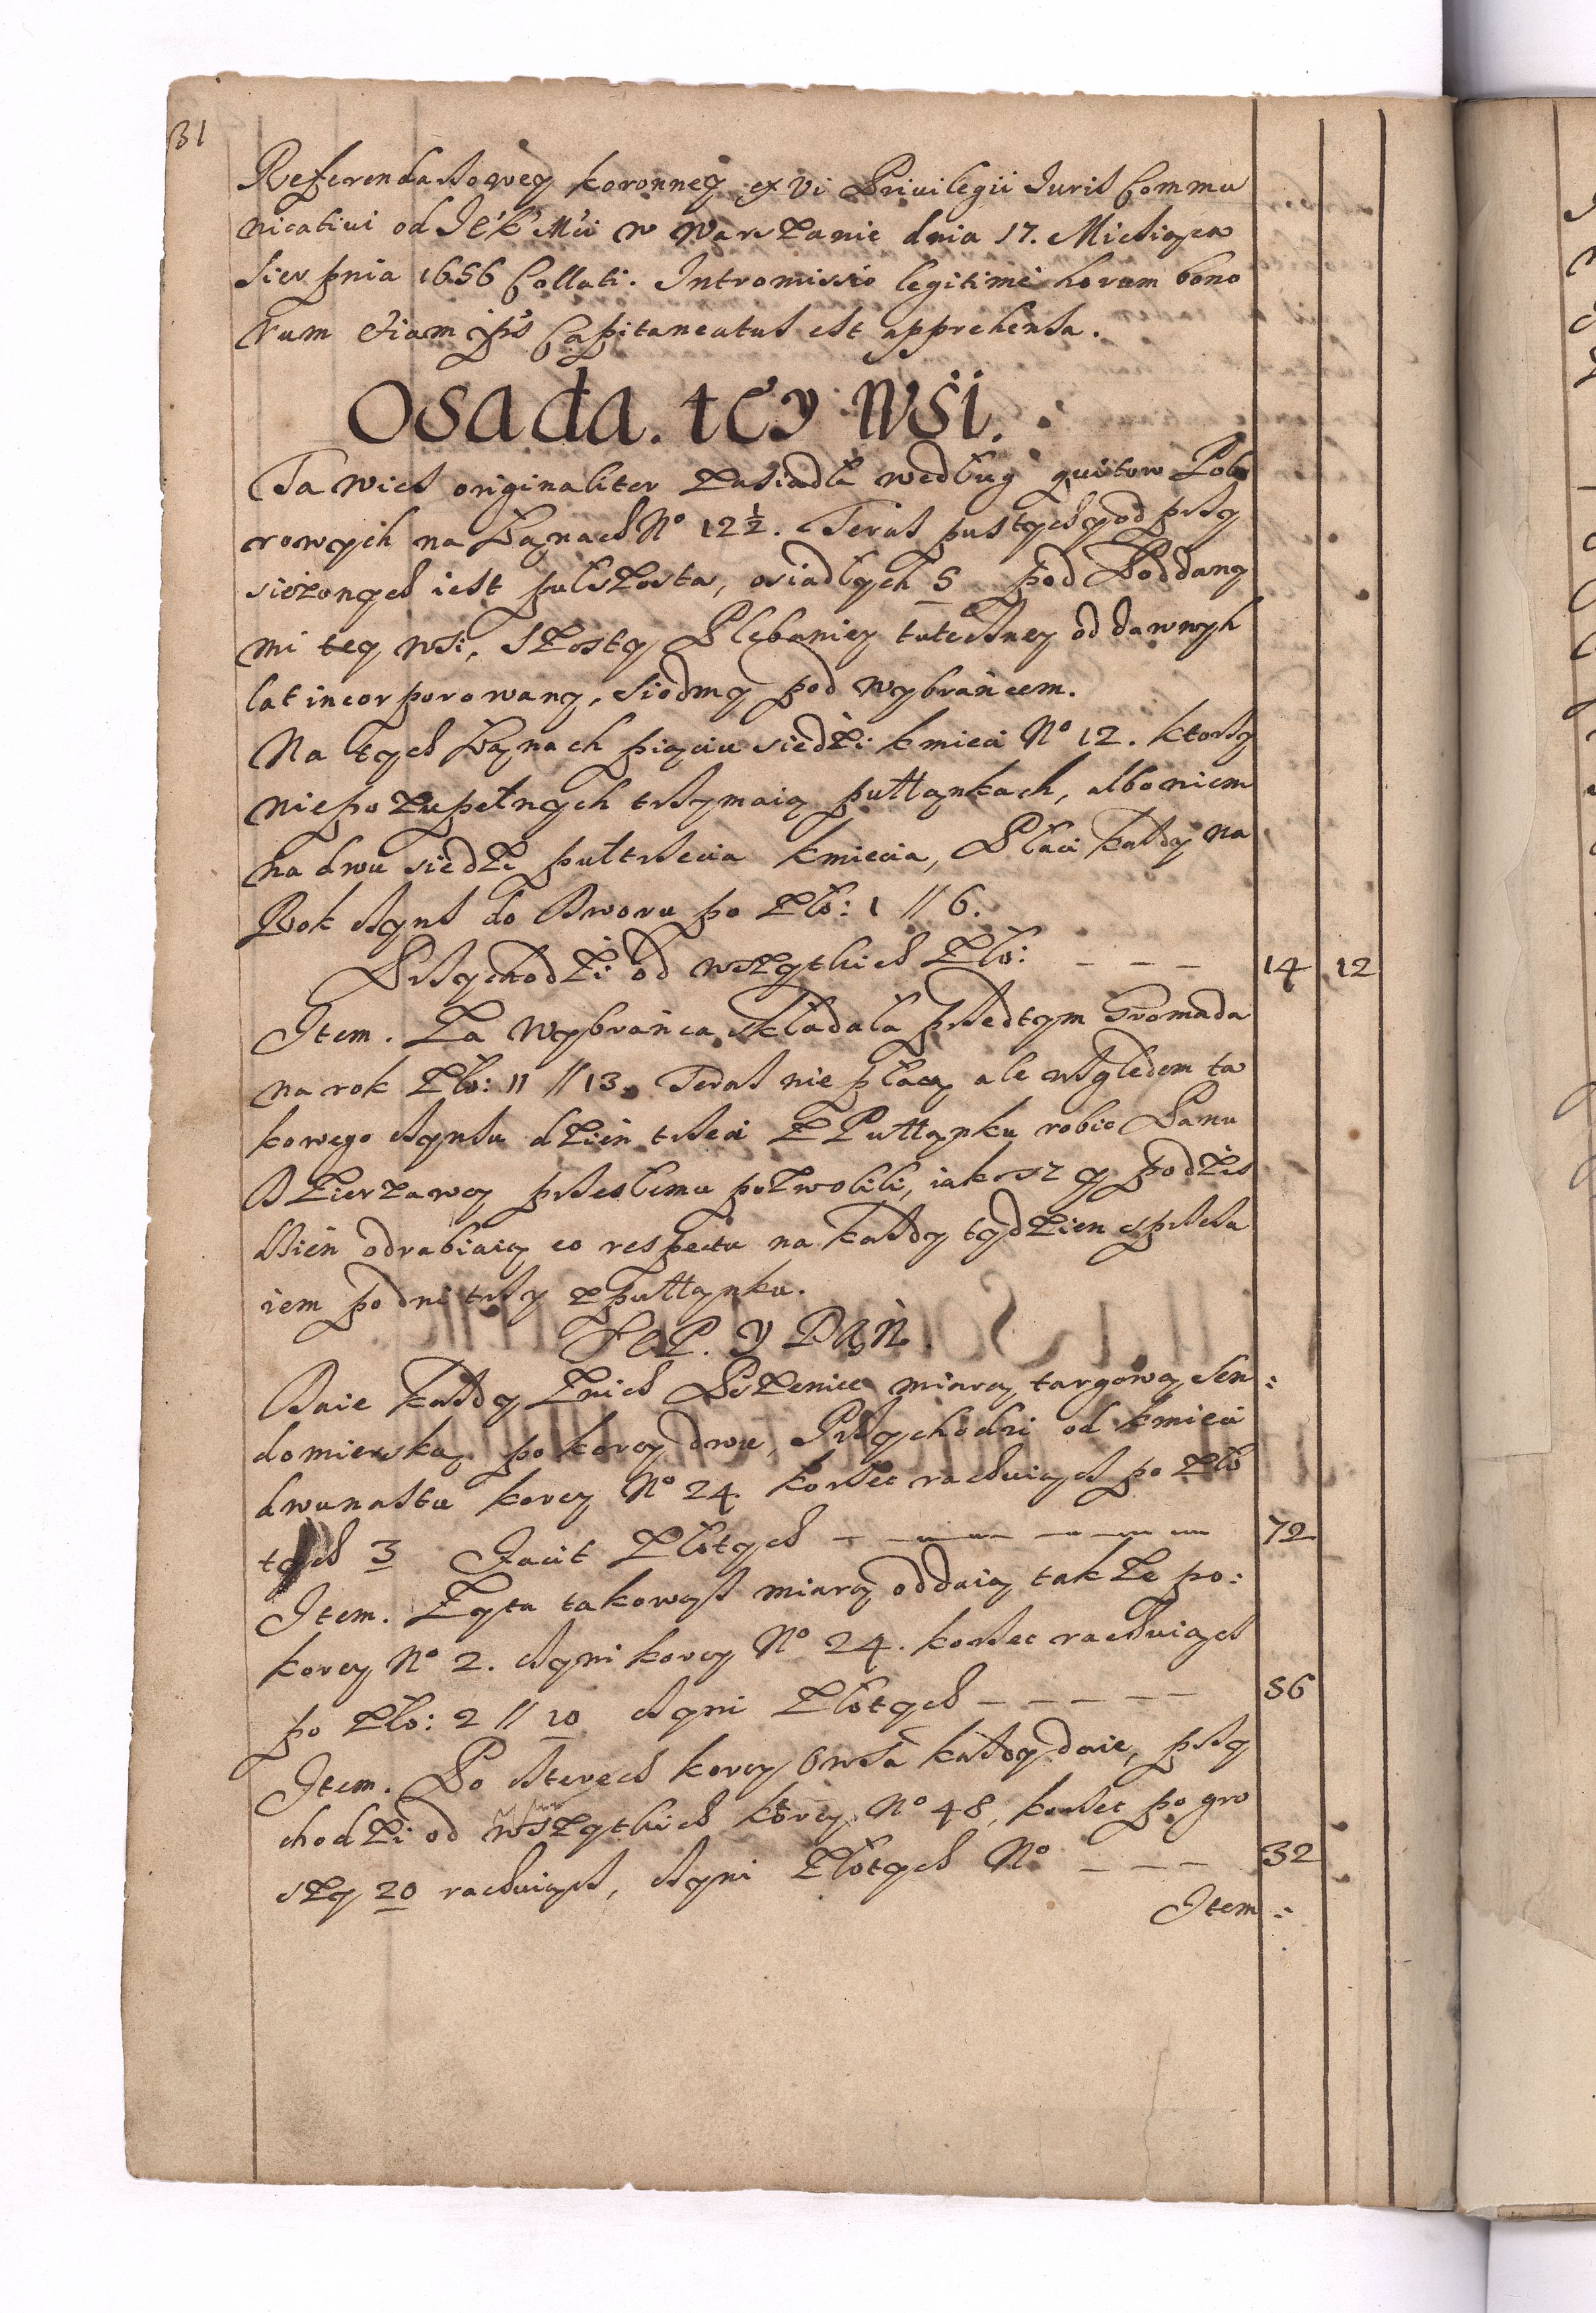 31
Referendarzowey koronney ex vi Priuilegii Iuris Commu
nicatiui od JeK Mci w Warszawie dnia 17. Miesiąca
Sierpnia 1656 Collati. Intromissio legitime horum bono
rum etiam ips Capitaneatus est apprehensa.
Osada. tey Wsi.
Ta wies originaliter zasiadła według quitow Pobo
rowych na Łanach No 12½. Teraz pustych y od przy
sieżonych iest pułszosta, osiadłych 5 pod Poddany
mi tey wsi, szosty Plebaniey tuteczney od dawnych
lat incorporowany, siodmy pod wybrańcem.
Na tych Łanach piąciu siedzi kmieci No 12. ktorzy
niepo zupełnych trzymaią pułłankach, albowiem
na dwu siedzi pułtrzecia kmiecia, Płaci każdy na
Rok czynsz do Dworu po Zło: 1 // 6.
Przychodzi od wszytkich Zło: - - - 14 12
Item. Za Wybrańca składała przedtym Gromada
na rok Zło: 11 // 13. Teraz nie płacą ale względem ta
kowego czynszu dzień trzeci z Pułłanku robic Panu
Dzierzawcy przeszłemu pozwolili, iakosz y podziś
dzien odrabiaią eo respectu na każdy tydzien sprzeza
iem po dni trzy z pułłanku.
SEP. Y DAŃ.
Daie każdy znich Pszenice miarą targową Sen:
domierską po korcy dwu, Przychodzi od kmieci
dwunastu korcy No 24. korzec rachuiąc po zło
tych 3 Facit Złotych - - - - - 72
Item. Zyta takowąż miarą oddaią także po:
korcy No 2. czyni korcy No 24. korzec rachuiąc
po Zło: 2 // 10 czyni Złotych - - - - - 56
Item. Po czterech korcy Owsa każdy daie, przy
chodzi od wszytkich korcy No 48, korzec po gro
szy 20 rachuiąc, czyni Złotych No - - - 32
Item: